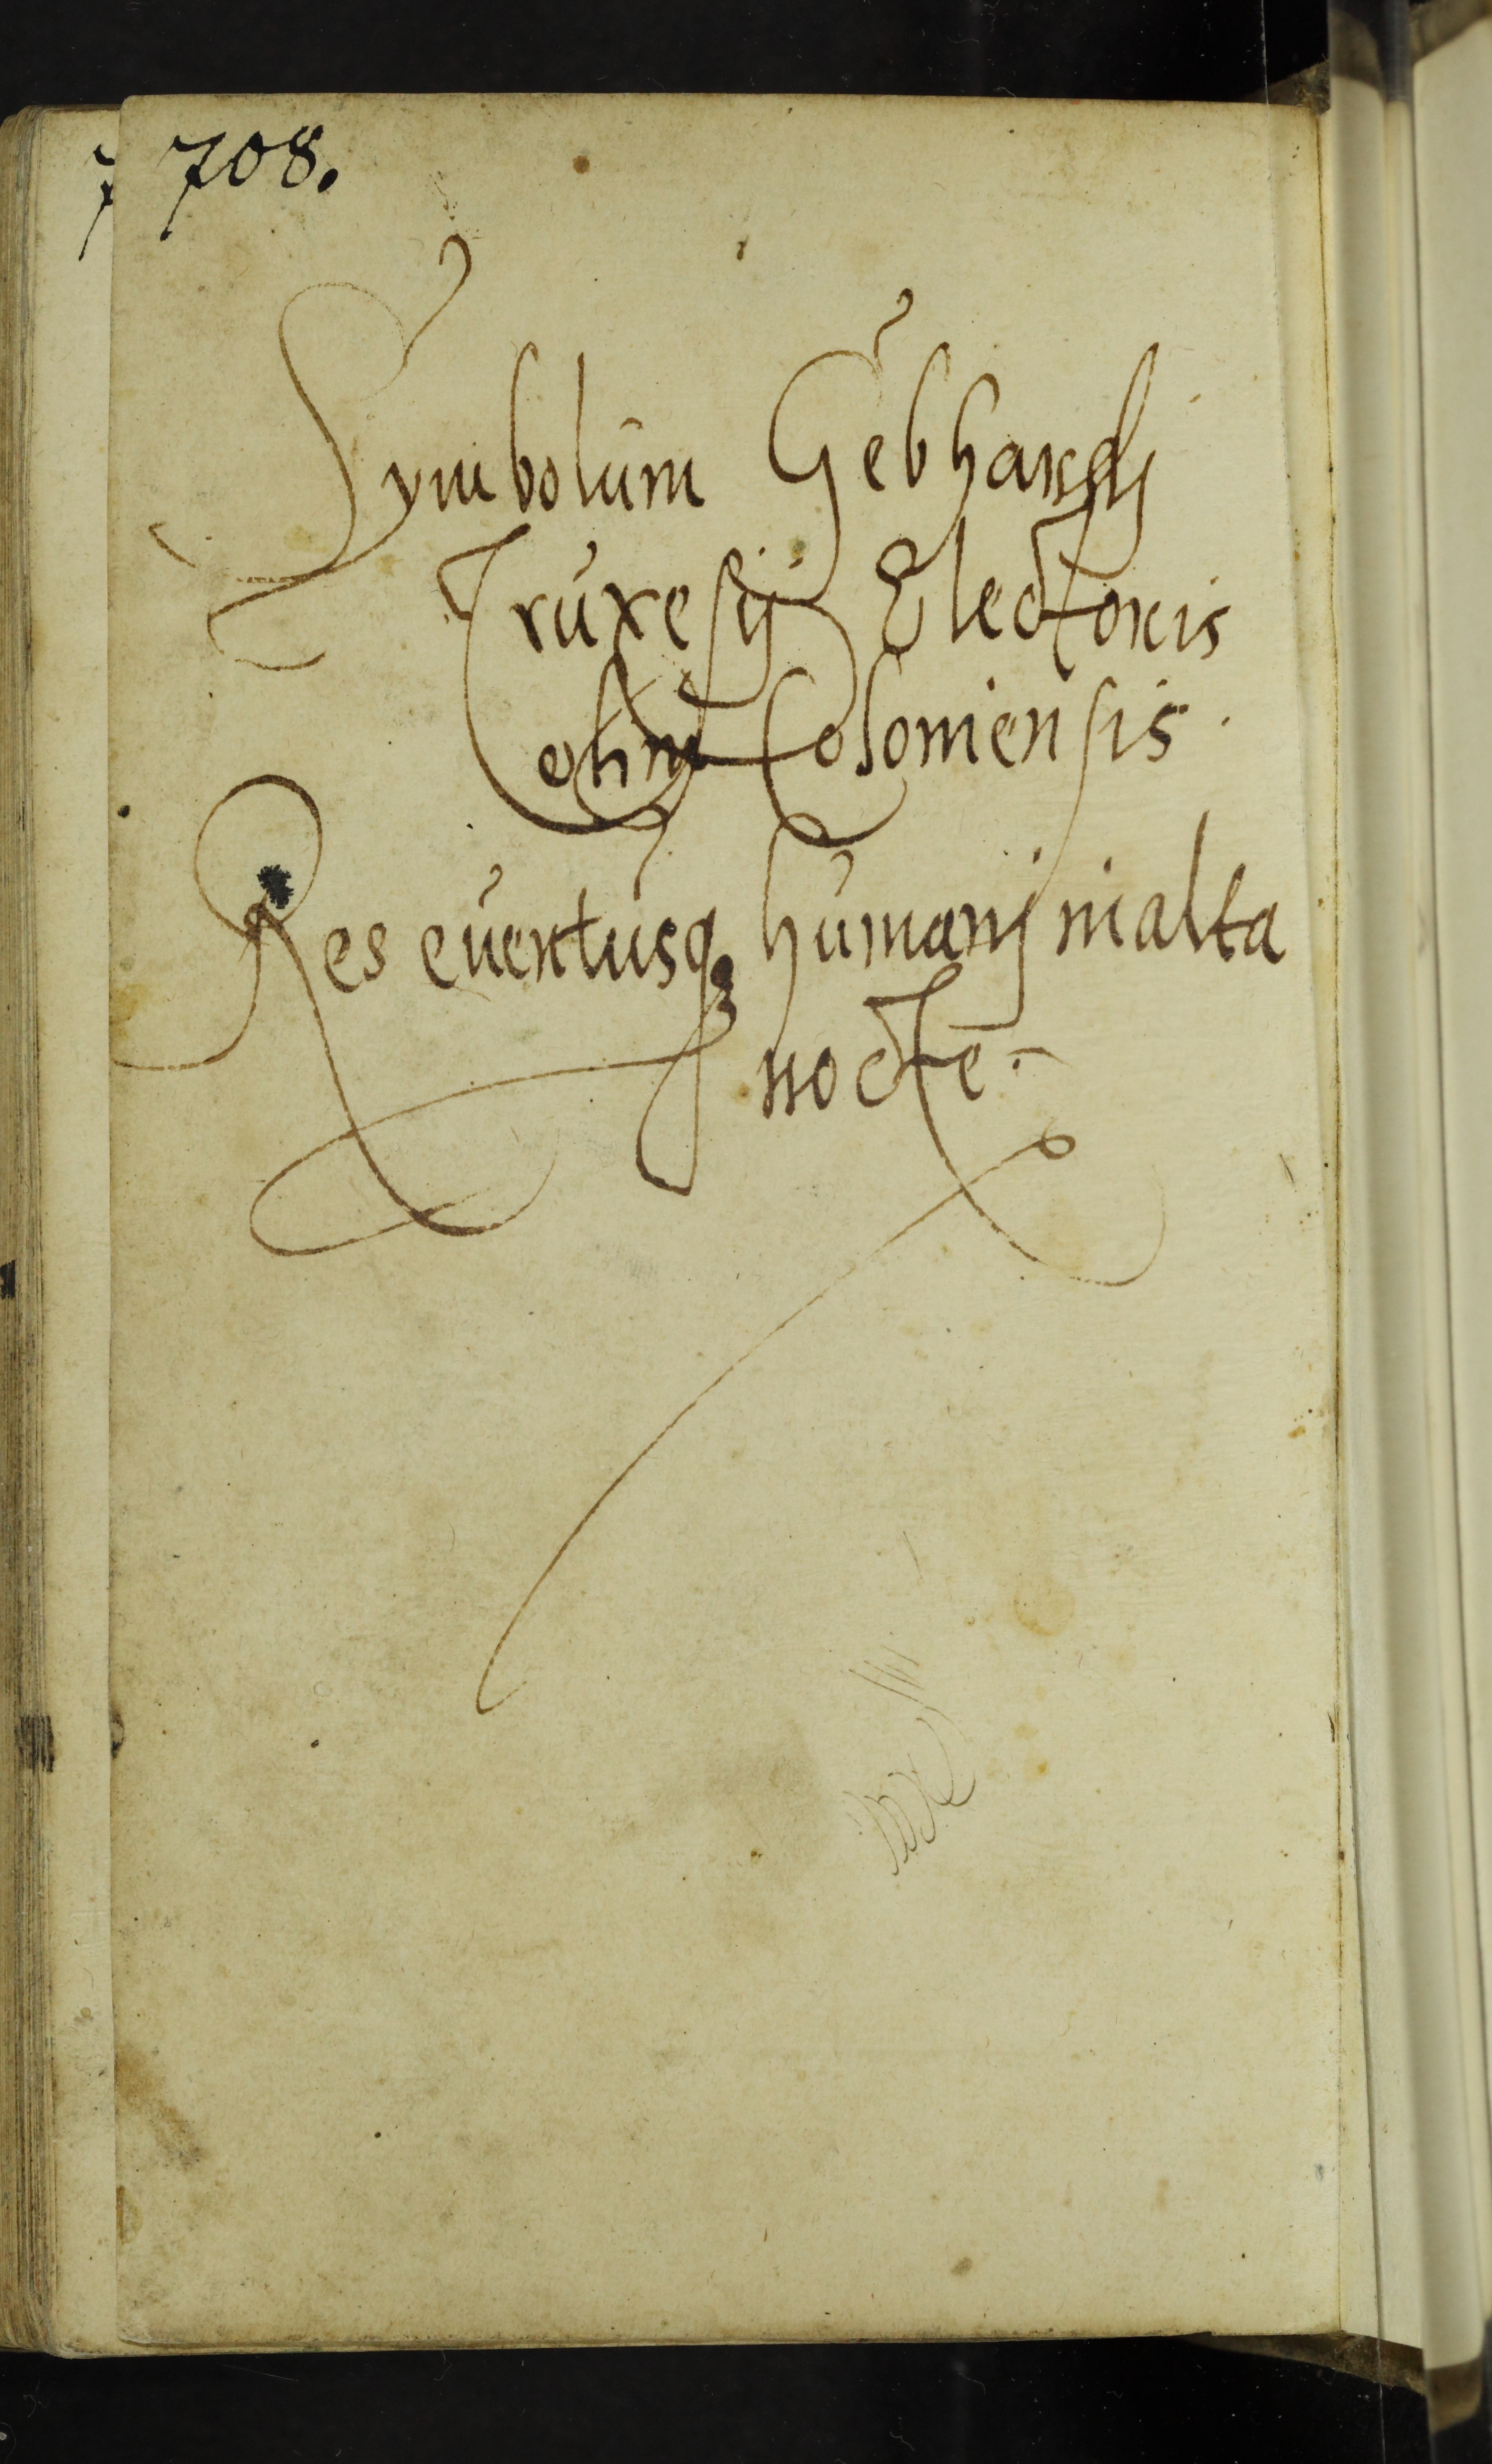 7 708.
Symbolum Gebhardj
Truxesij Electoris
olim Coloniensis.
Res euentusq; humanj in alta
nocte.